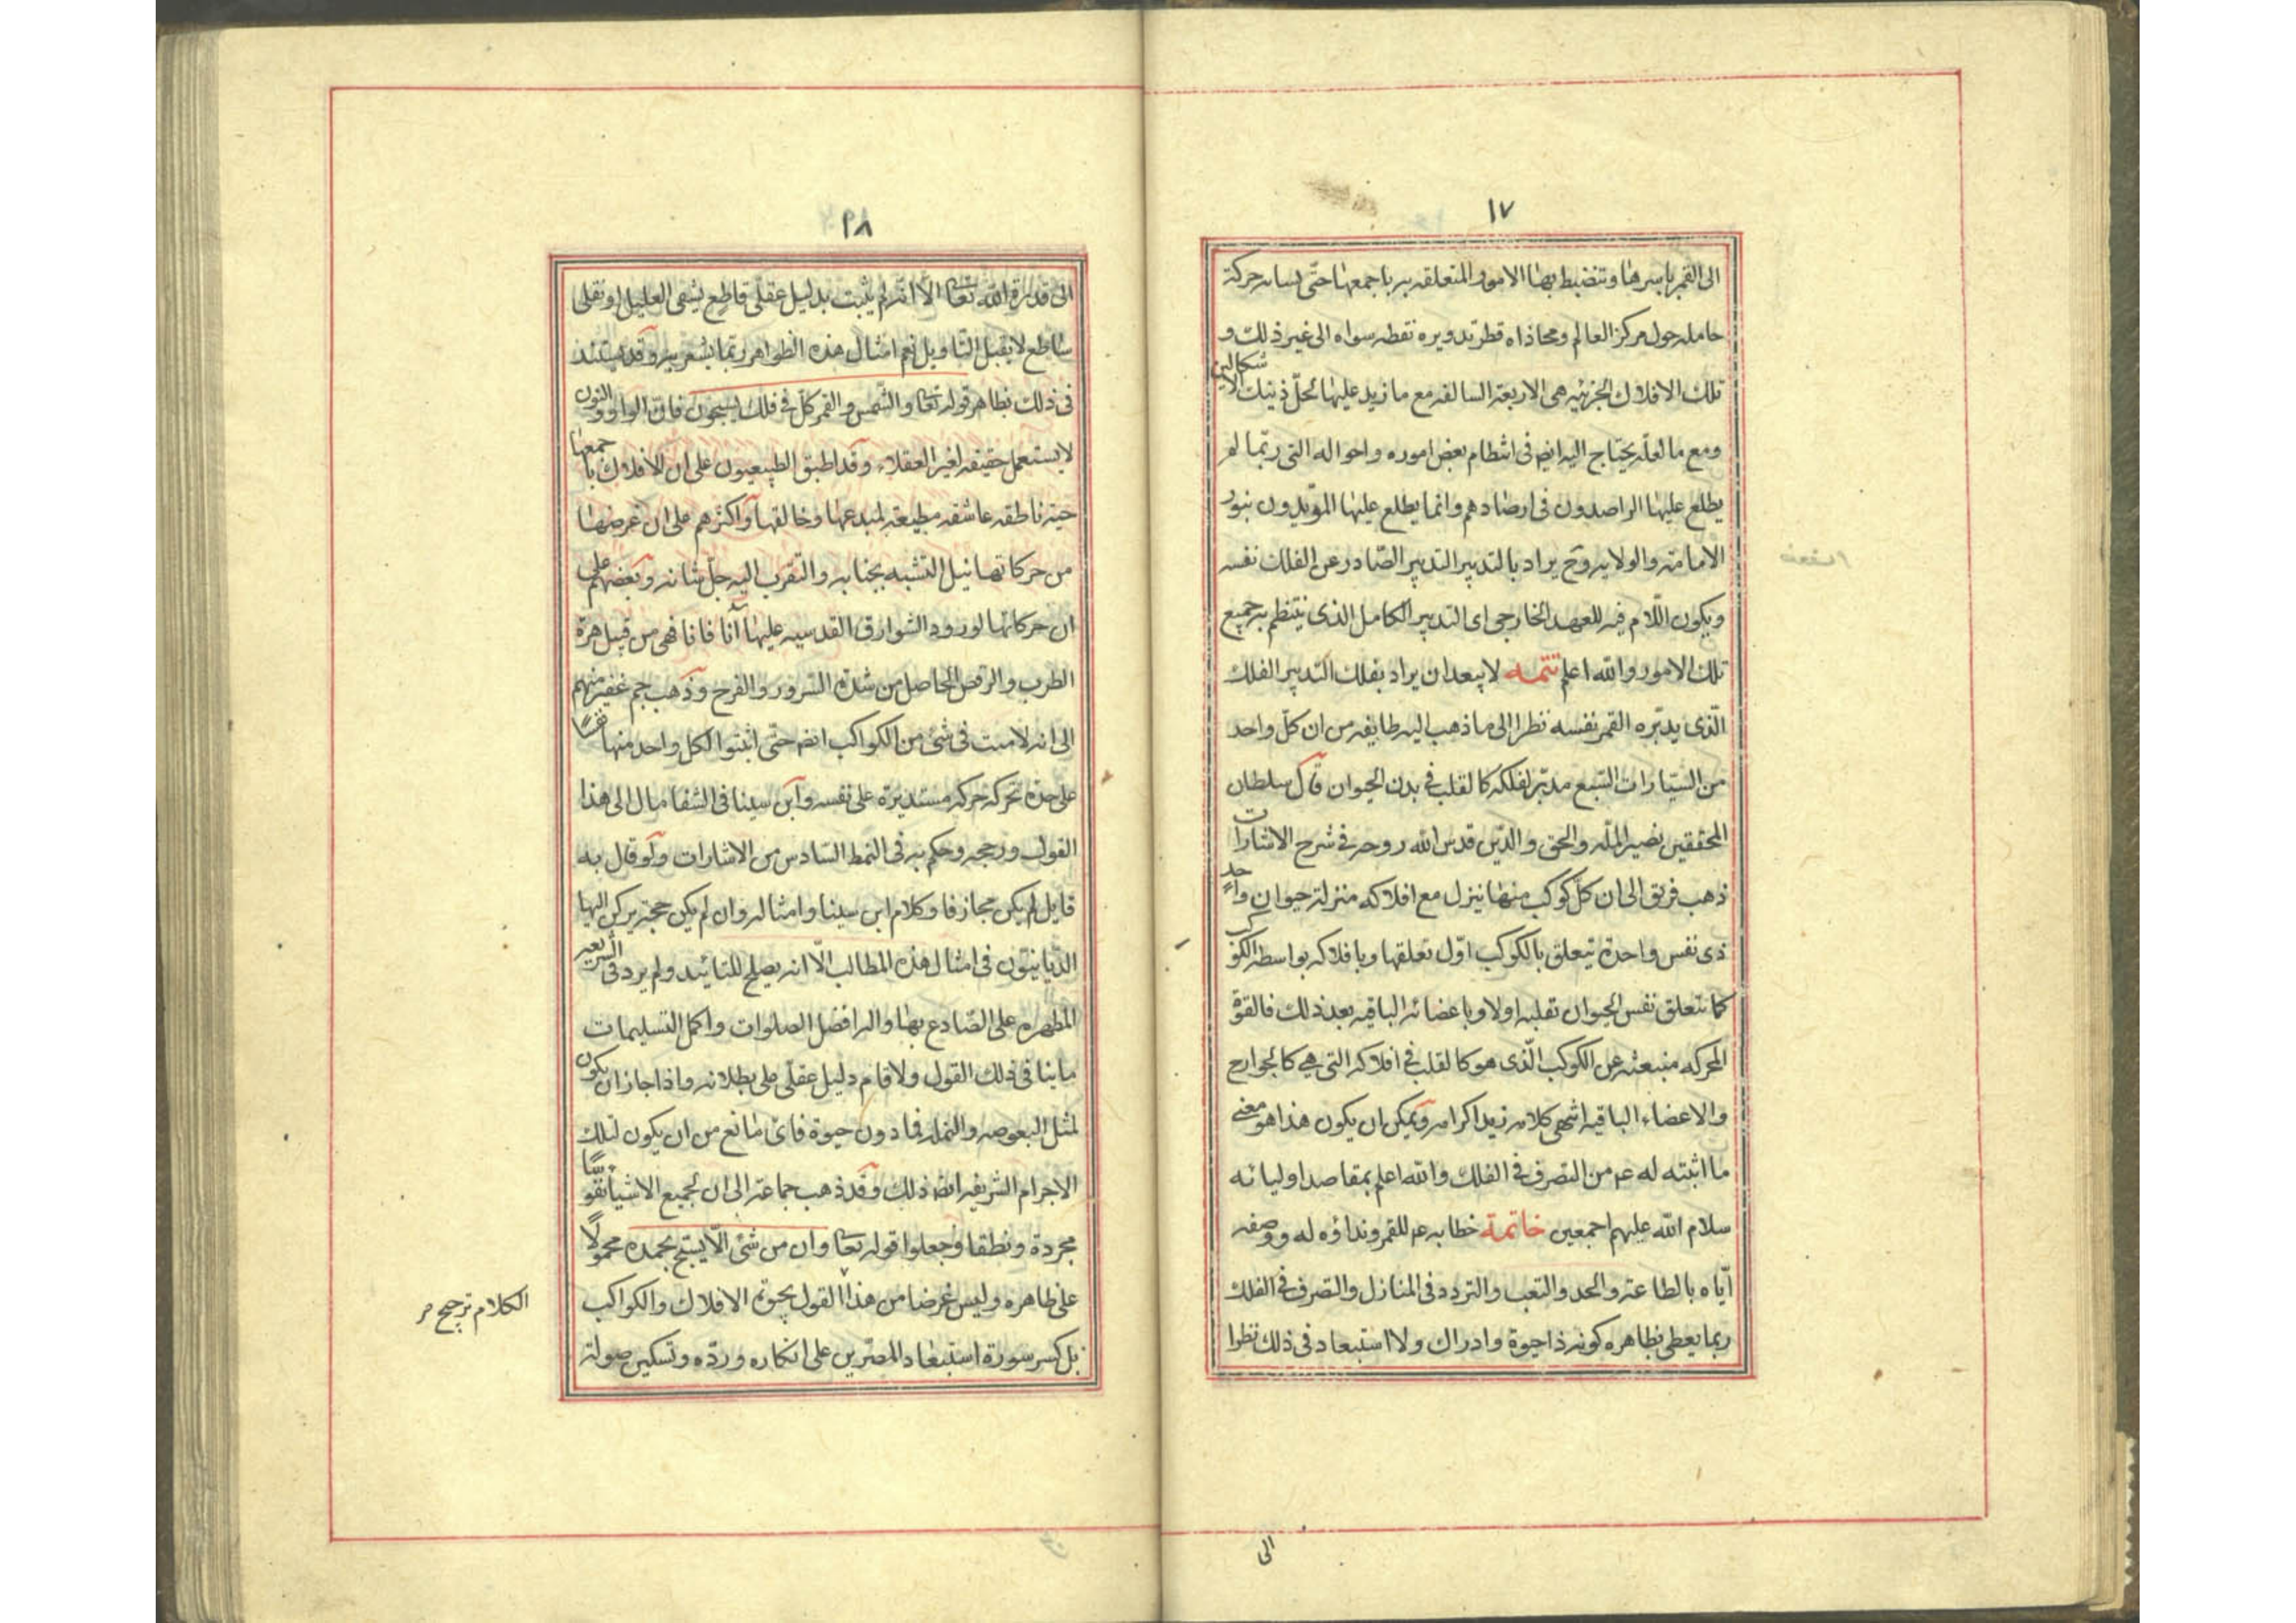 ١٧
الى القمر باسرها وتنضبط بها الامور المتعلقه به باجمعها حتّى تشابه حركة
حامله حول مركز العالم ومحاذاه قطر تدويره نقطه سواه الى غير ذلك و
تلك الافلاك الجزئيه هى الاربعة السالفه مع ما زيد عليها لحلّ ذينك الاشكالين
ومع ما لعلّه يحتاج اليه ايضا فى انتظام بعض اموره واحواله التى ربّما لم
يطلع عليها الراصدون فى ارصادهم وانما يطلع عليها المؤيدون بنور
الامامة والولايه وح يراد بالتدبير التدبير الصّادر عن الفلك نفسه
ويكون اللّام فيه للعهد الخارجى اى التدبير الكامل الذى ينتظم به جميع
تلك الامور والله اعلم تتمه لا يبعد ان يراد بفلك التدبير الفلك
الّذى يدبّره القمر نفسه نظرا الى ما ذهب اليه طايفه من ان كلّ واحد
من السّيّارات السّبع مدبّر لفلكه كالقلب فى بدن الحيوان قال سلطان
المحققين نصير الملّه والحق والدّين قدس الله روحه فى شرح الاشارات
ذهب فريق الى ان كلّ كوكب منها ينزل مع افلاكه منزلة حيوان واحد
ذى نفس واحدة يتعلق بالكوكب اوّل تعلقها وبافلاكه بواسطه الكوكب
كما تتعلق نفس الحيوان بقلبه اولا وباعضائه الباقيه بعد ذلك فالقوّة
المحركه منبعثه عن الكوكب الّذى هو كالقلب فى افلاكه التى هى كالجوارح
والاعضاء الباقيه انتهى كلامه زيد اكرامه ويمكن ان يكون هذا هو معنى
ما اثبته له عم من التصرف فى الفلك والله اعلم بمقاصد اوليائه
سلام الله عليهم اجمعين خاتمة خطابه عم للقمر ونداؤه له ووصفه
ايّاه بالطاعة والجد والتعب والتردد فى المنازل والتصرف فى الفلك
ربما يعطى بظاهره كونه ذا حيوة وادراك ولا استبعاد فى ذلك نظرا
الى
١٨
الى قدرة الله تعا الّا انّه لم يثبت بدليل عقلى قاطع يشفى العليل او نقلى
ساطع لا يقبل التاويل نعم امثال هذه الظواهر ربّما يشعر به وقد يستند
فى ذلك بظاهر قوله تعا والشّمس والقمر كلّ فى فلك يسبحون فان الواو والنون
لا يستعمل حقيقه لغير العقلاء وقد اطبق الطبيعيون على ان الافلاك باجمعها
حيّة ناطقه عاشقه مطيعة لمبدعها وخالقها واكثرهم على ان غرضها
من حركاتها نيل التشبه بجنابه والتقرب اليه جلّ شانه وبعضهم على
ان حركاتها لورود الشوارق القدسيه عليها آنا فانا فهى من قبيل هزة
الطرب والرقص الحاصل من شدة السرور والفرح وذهب جم غفير منهم
الى انه لا ميت فى شئ من الكواكب ايضا حتّى اثبتوا لكل واحد منها نفسًا
على حدة تحركه حركه مستديرة على نفسه وابن سينا فى الشفا مال الى هذا
القول ورجحه وحكم به فى النمط السّادس من الاشارات ولو قال به
قايل لم يكن مجازفا وكلام ابن سينا وامثاله وان لم يكن حجة يركن اليها
الدّيانيّون فى امثال هذه المطالب الّا انه يصلح للتائيد ولم يرد فى الشريعه
المطهره على الصّادع بها واله افضل الصلوات واكمل التسليمات
ما ينافى ذلك القول ولا قام دليل عقلى على بطلانه واذا جاز ان يكون
لمثل البعوضه والنمله فما دون حيوة فاى مانع من ان يكون لتلك
الاجرام الشريفه ايضا ذلك وقد ذهب جماعة الى ان لجميع الاشيا نفوسًا
مجردة ونطقا وجعلوا قوله تعا وان من شئ الّا يسبّح بحمده محمولًا
على ظاهره وليس غرضنا من هذا القول بحيوة الافلاك والكواكب
بل كسر سورة استبعاد المصرّين على انكاره وردّه وتسكين صولة
الكلام ترجيح